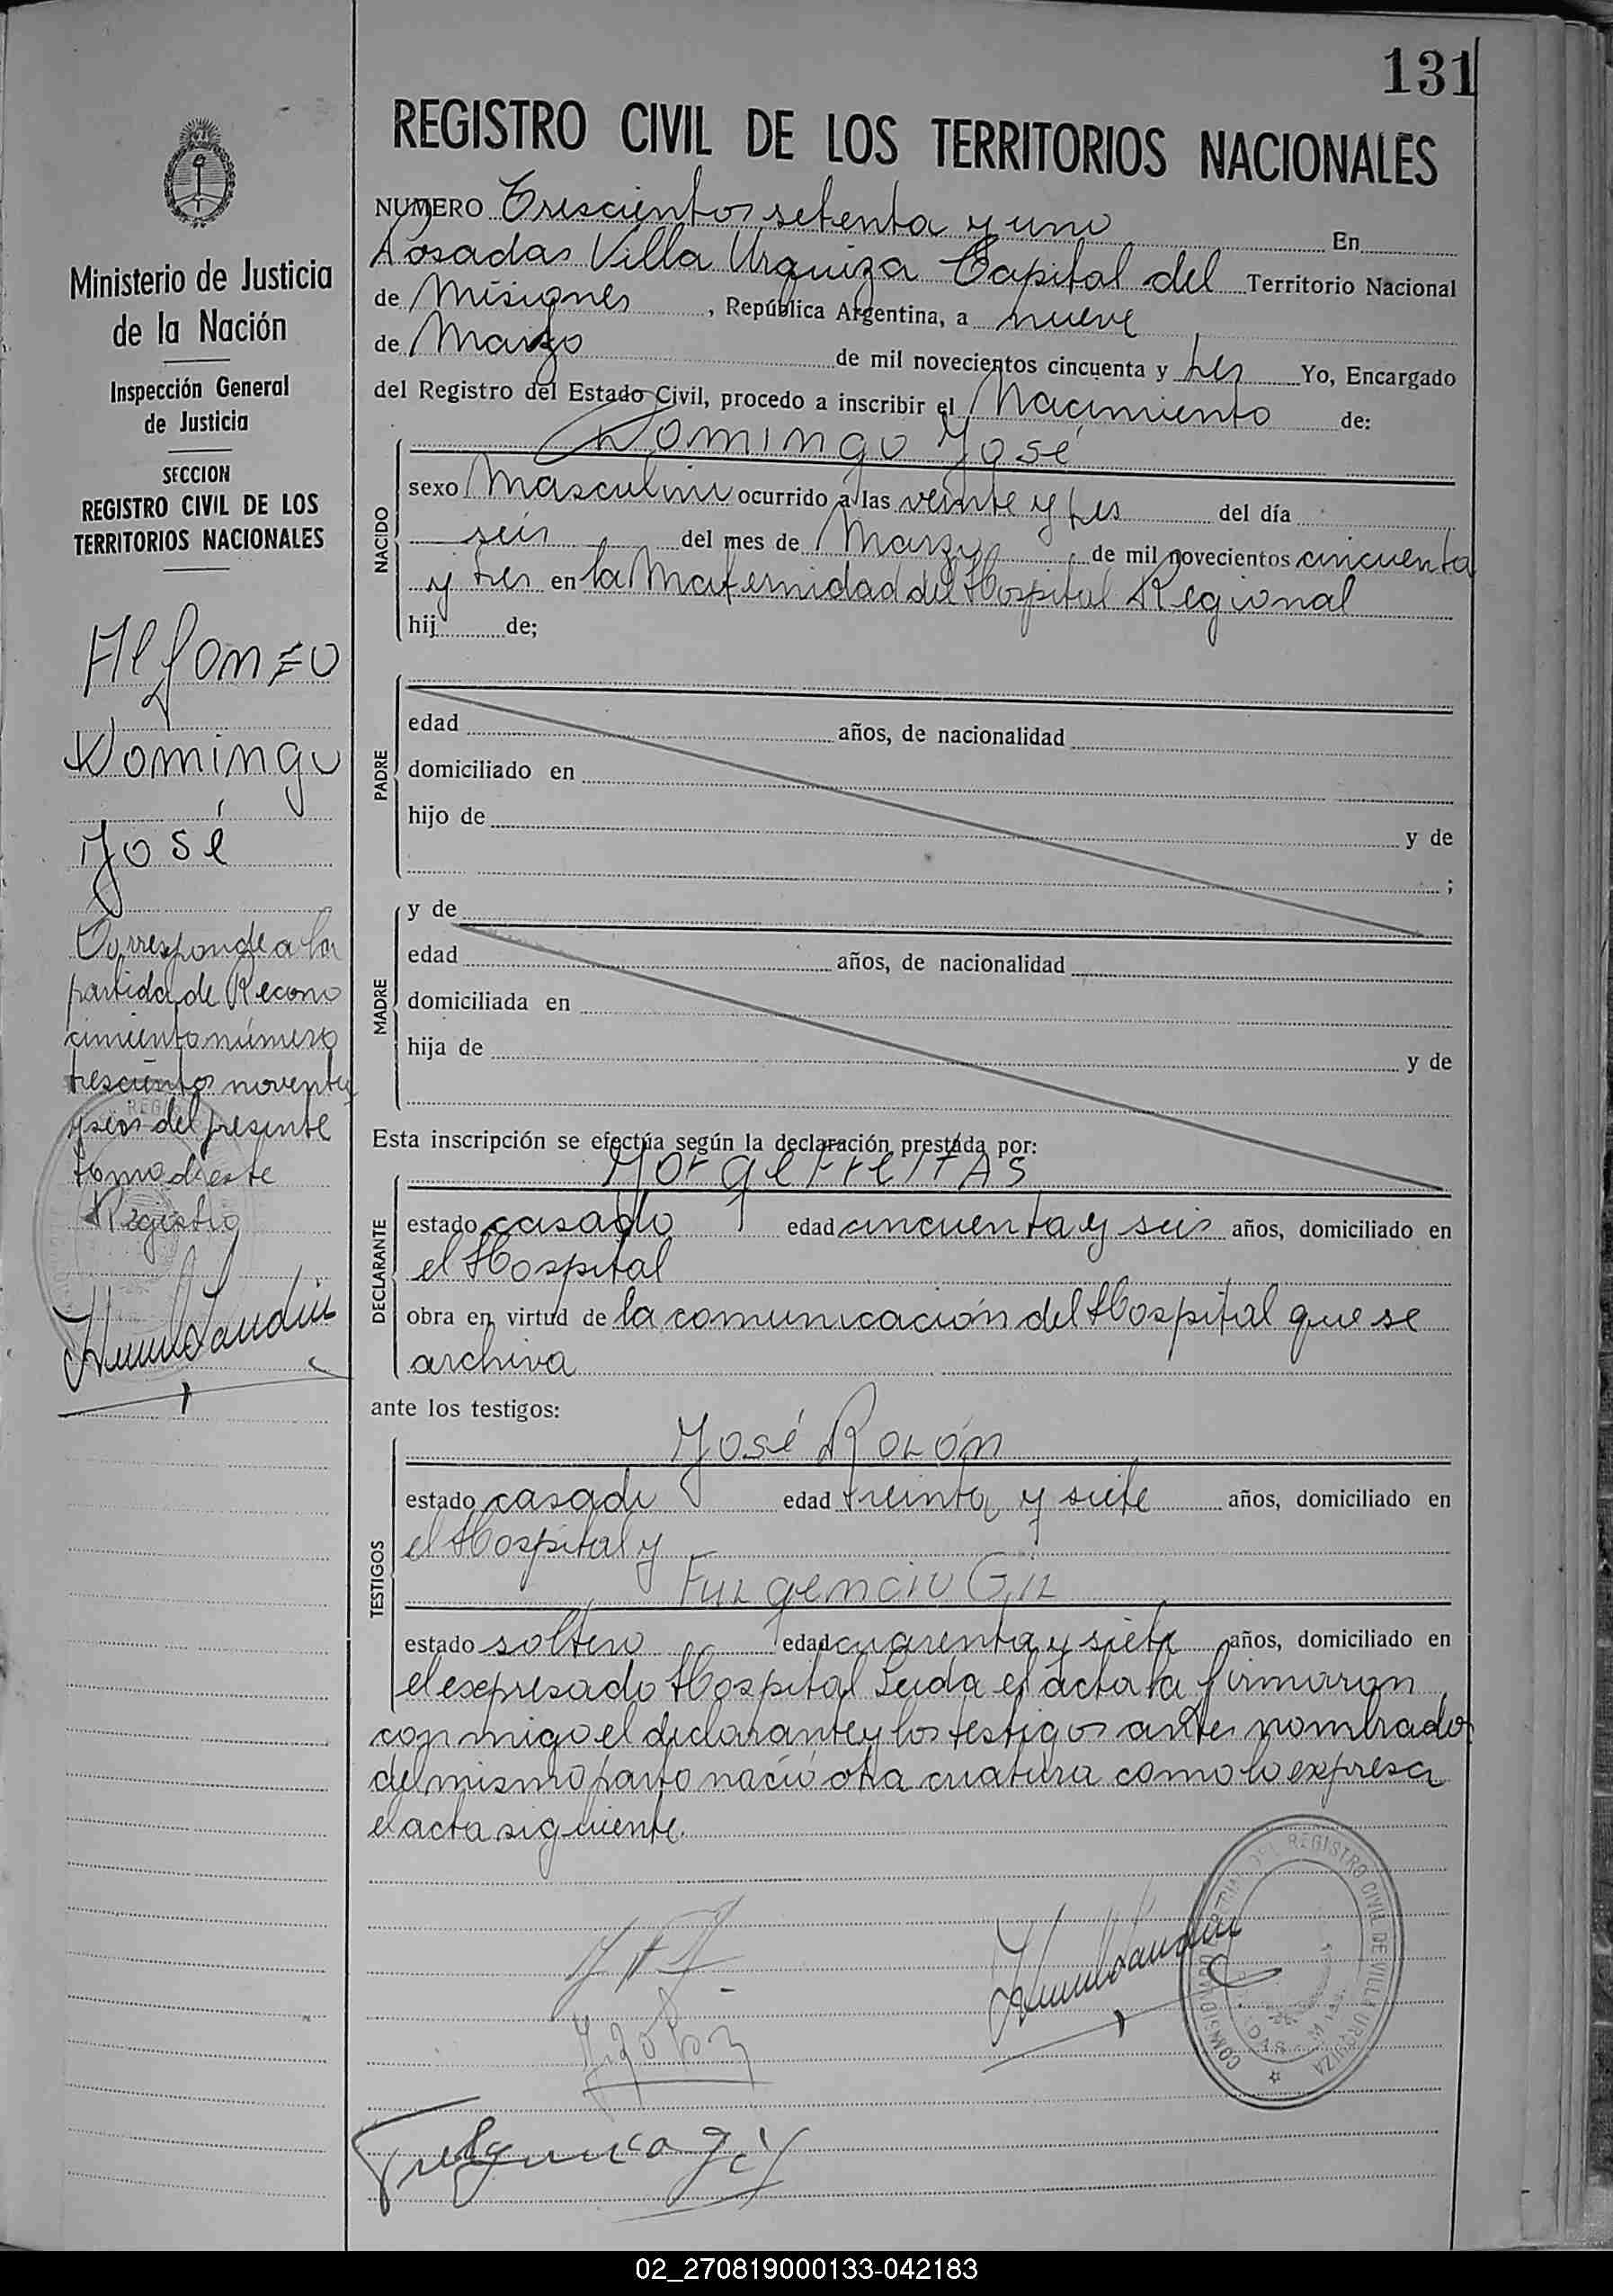 131
REGISTRO CIVIL DE LOS TERRITORIOS NACIONALES
Ministerio de Justicia
de la Nación
Inspección General
de Justicia
SECCION
REGISTRO CIVIL DE LOS
TERRITORIOS NACIONALES
Alfonzo
Domingo
José
Corresponde a la
partida de Recono
cimiento número
trescientos noventa
y seis del presente
tomo de este
Registro
NUMERO Trescientos setenta y uno En
Posadas Villa Urquiza Capital del Territorio Nacional
de Misiones, República Argentina, a nueve
de Marzo de mil novecientos cincuenta y tres Yo, Encargado
del Registro del Estado Civil, procedo a inscribir el Nacimiento de:
Domingo José
NACIDO
sexo Masculino ocurrido a las veinte y tres del día
seis del mes de Marzo de mil novecientos cincuenta
y tres en la Maternidad del Hospital Regional
hij de;
PADRE
edad años, de nacionalidad
domiciliado en
hijo de y de
;
MADRE
y de
edad años, de nacionalidad
domiciliada en
hija de y de
Esta inscripción se efectúa según la declaración prestada por:
Jorge Freitas
DECLARANTE
estado casado edad cincuenta y seis años, domiciliado en
el Hospital
obra en virtud de la comunicación del Hospital que se
archiva
ante los testigos:
José Rolón
TESTIGOS
estado casado edad treinta y siete años, domiciliado en
el Hospital y
Fulgencio Gil
estado soltero edad cuarenta y siete años, domiciliado en
el expresado Hospital Leida el acta la firmaron
conmigo el declarante y los testigos antes nombrados
del mismo parto nació otra criatura como lo expresa
el acta siguiente.
REGISTRO CIVIL DE VILLA URQUIZA
Fulgencio Gil
02_270819000133-042183